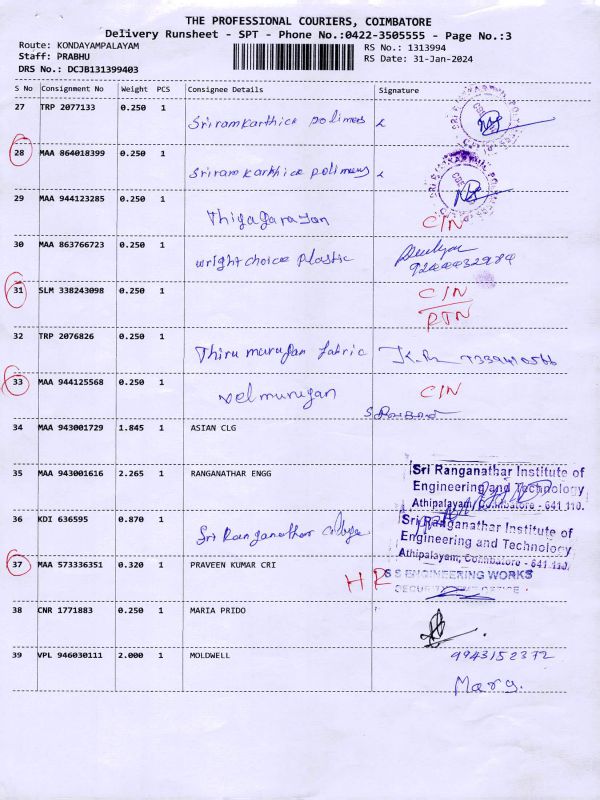 THE PROFESSIONAL COURIERS, COIMBATORE
Delivery Runsheet - SPT - Phone No.:0422-3505555 - Page No.:3
Route: KONDAYAMPALAYAM
RS No.: 1313994
Staff: PRABHU
RS Date: 31-Jan-2024
DRS No.: DCJB131399403
S No Consignment No Weight PCS Consignee Details Signature
27 TRP 2077133 0.250 1
Sriramkarthick polimers
28 MAA 864018399 0.250 1
Sriramkarthick polimers
29 MAA 944123285 0.250 1
Thigagarayan C/N
30 MAA 863766723 0.250 1
wrightchoice plastic
31 SLM 338243098 0.250 1 C/N
RTN
32 TRP 2076826 0.250 1
Thirumurugan fabric
33 MAA 944125568 0.250 1 C/N
velmurugan
34 MAA 943001729 1.845 1 ASIAN CLG
35 MAA 943001616 2.265 1 RANGANATHAR ENGG
Sri Ranganathar Institute of
Engineering and Technology
Athipalayam, Coimbatore - 641 110.
36 KDI 636595 0.870 1
Sri Ranganathar college
Sri Ranganathar Institute of
Engineering and Technology
Athipalayam, Coimbatore - 641 110.
37 MAA 573336351 0.320 1 PRAVEEN KUMAR CRI
HR
S S ENGINEERING WORKS
38 CNR 1771883 0.250 1 MARIA PRIDO
39 VPL 946030111 2.000 1 MOLDWELL
9943152372
Marg.